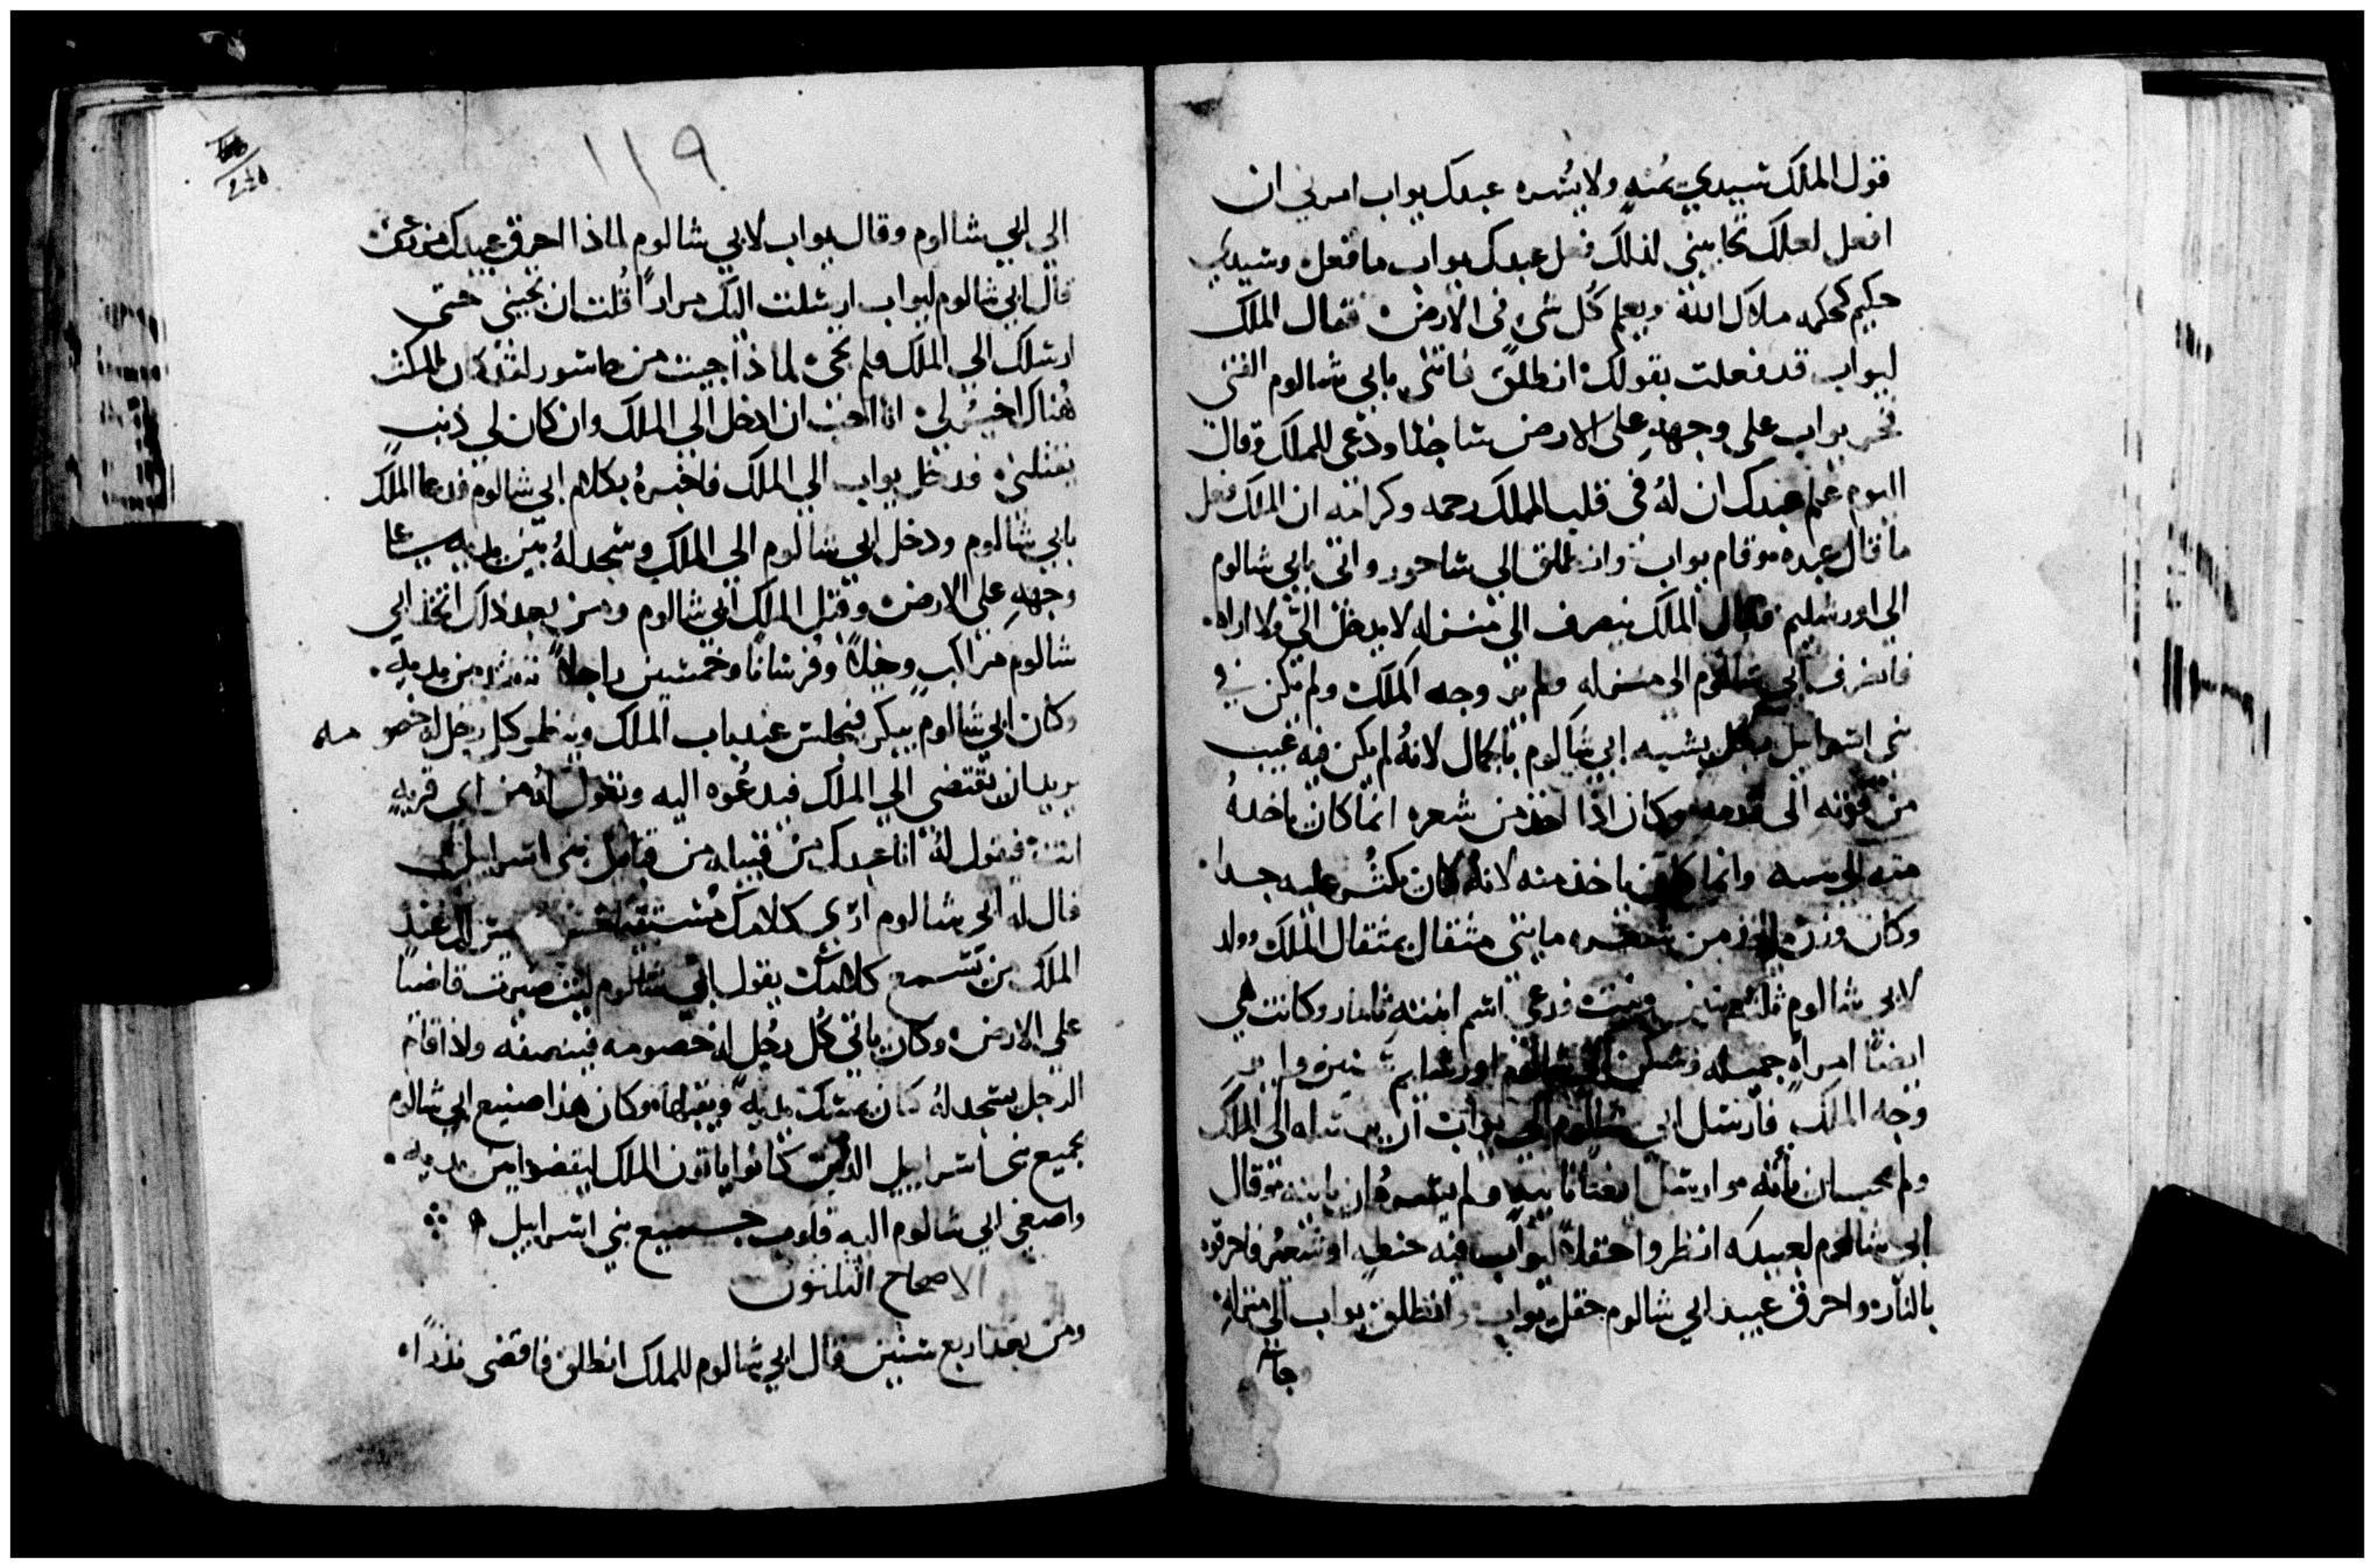 قول الملك سيدي يمنه ولا يسره عبدك يواب امرني ان
افعل لعلك تحاببني لذلك فعل عبدك يواب ما فعل وسيدي
حكيم كحكمه ملاك الله ويعلم كل شي في الارض فقال الملك
ليواب قد فعلت بقولك انطلق فاتني بابي شالوم الفتى
فخر يواب على وجهه على الارض ساجدا ودعى للملك وقال
اليوم علم عبدك ان له في قلب الملك رحمه وكرامه ان الملك فعل
ما قال عبده وقام يواب وانطلق الي شاحور واتى بابي شالوم
الى اورشليم فقال الملك ينصرف الى منزله لا يدخل الي ولا اراه
فانصرف ابي شالوم الى منزله ولم ير وجه الملك ولم يكن في
بني اسراييل رجل يشبه ابي شالوم بالجمال لانه لم يكن فيه عيب
من قرنه الى قدمه وكان اذا اخذ من شعره انما كان ياخذه
وانما كان ياخذ منه لانه كان يكثر عليه جدا
وكان وزن ما اخذ من شعره مايتي مثقال بمثقال الملك وولد
لابي شالوم ثلثه بنين وبنت فدعي اسم ابنته ثامار وكانت هي
ايضا امراه جميله وسكن ابي شالوم اورشليم سنتين ولم ير
وجه الملك فارسل ابي شالوم الي يواب ان يرسله الى الملك
ولم يحب ان ياته وارسل ايضا ثانيه ولم يسره ان ياتيه وقال
ابي شالوم لعبيده انظروا حقل يواب فيه حنطه او شعير فاحرقوه
بالنار واحرق عبيد ابي شالوم حقل يواب وانطلق يواب الي منزله
١١٩
الى ابي شالوم وقال يواب لابي شالوم لماذا احرق عبيدك مزرعتي
قال ابي شالوم ليواب ارسلت اليك مرارا قلت ان تجيني حتى
ارسلك الي الملك فلم تجي لماذا جيت من جاشور لقد كان المكث
هناك اخير لي انا احب ان ادخل الي الملك وان كان لي ذنب
يقتلني فدخل يواب الي الملك فاخبره بكلام ابي شالوم فدعا الملك
بابي شالوم ودخل ابي شالوم الي الملك وسجد له بين يديه على
وجهه على الارض وقبل الملك ابي شالوم ومن بعد ذلك اتخذ ابي
شالوم مراكب وخيلا وفرسانا وخمسين راجلا من يديه
وكان ابي شالوم يبكر فيجلس عند باب الملك وينظر كل رجل له خصومه
يريد ان يقتضي الي الملك فيدعوه اليه ويقول له من اي قريه
انت فيقول له انا عبدك من قبيله من قبايل بني اسراييل
قال له ابي شالوم ارى كلامك مستقيما وليس لك عند
الملك من يسمع كلامك يقول ابي شالوم ليت صيرت قاضيا
علي الارض وكان ياتي كل رجل له خصومه فينصفه واذا قام
الرجل يسجد له كان يمسك يديه ويقبلها وكان هذا صنيع ابي شالوم
بجميع بني اسراييل الذين كانوا ياتون الملك ليقضوا من يديه
واصغى ابي شالوم اليه قلوب جميع بني اسراييل
الاصحاح الثلثون
ومن بعد اربع سنين قال ابي شالوم للملك انطلق فاقضى نذرا